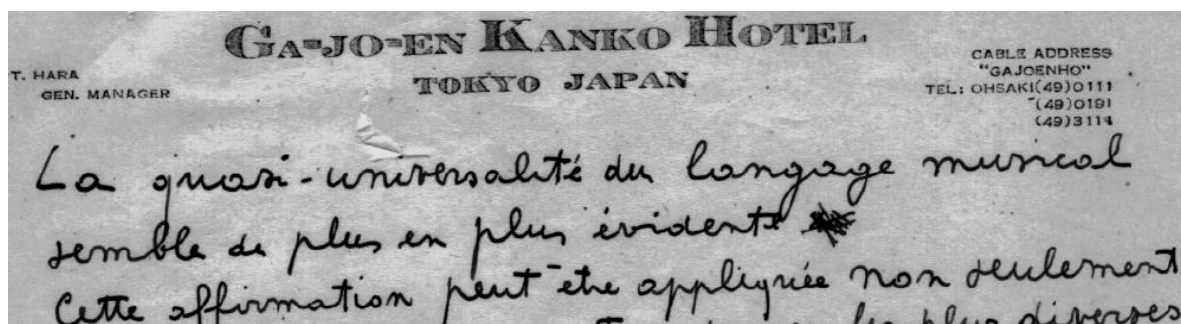 GA-JO-EN KANKO HOTEL
TOKYO JAPAN
T. HARA
GEN. MANAGER
CABLE ADDRESS
"GAJOENHO"
TEL: OHSAKI(49)0111
(49)0191
(49)3114
La quasi-universalité du langage musical
semble de plus en plus évidente
Cette affirmation peut-être appliquée non seulement
les plus diverses